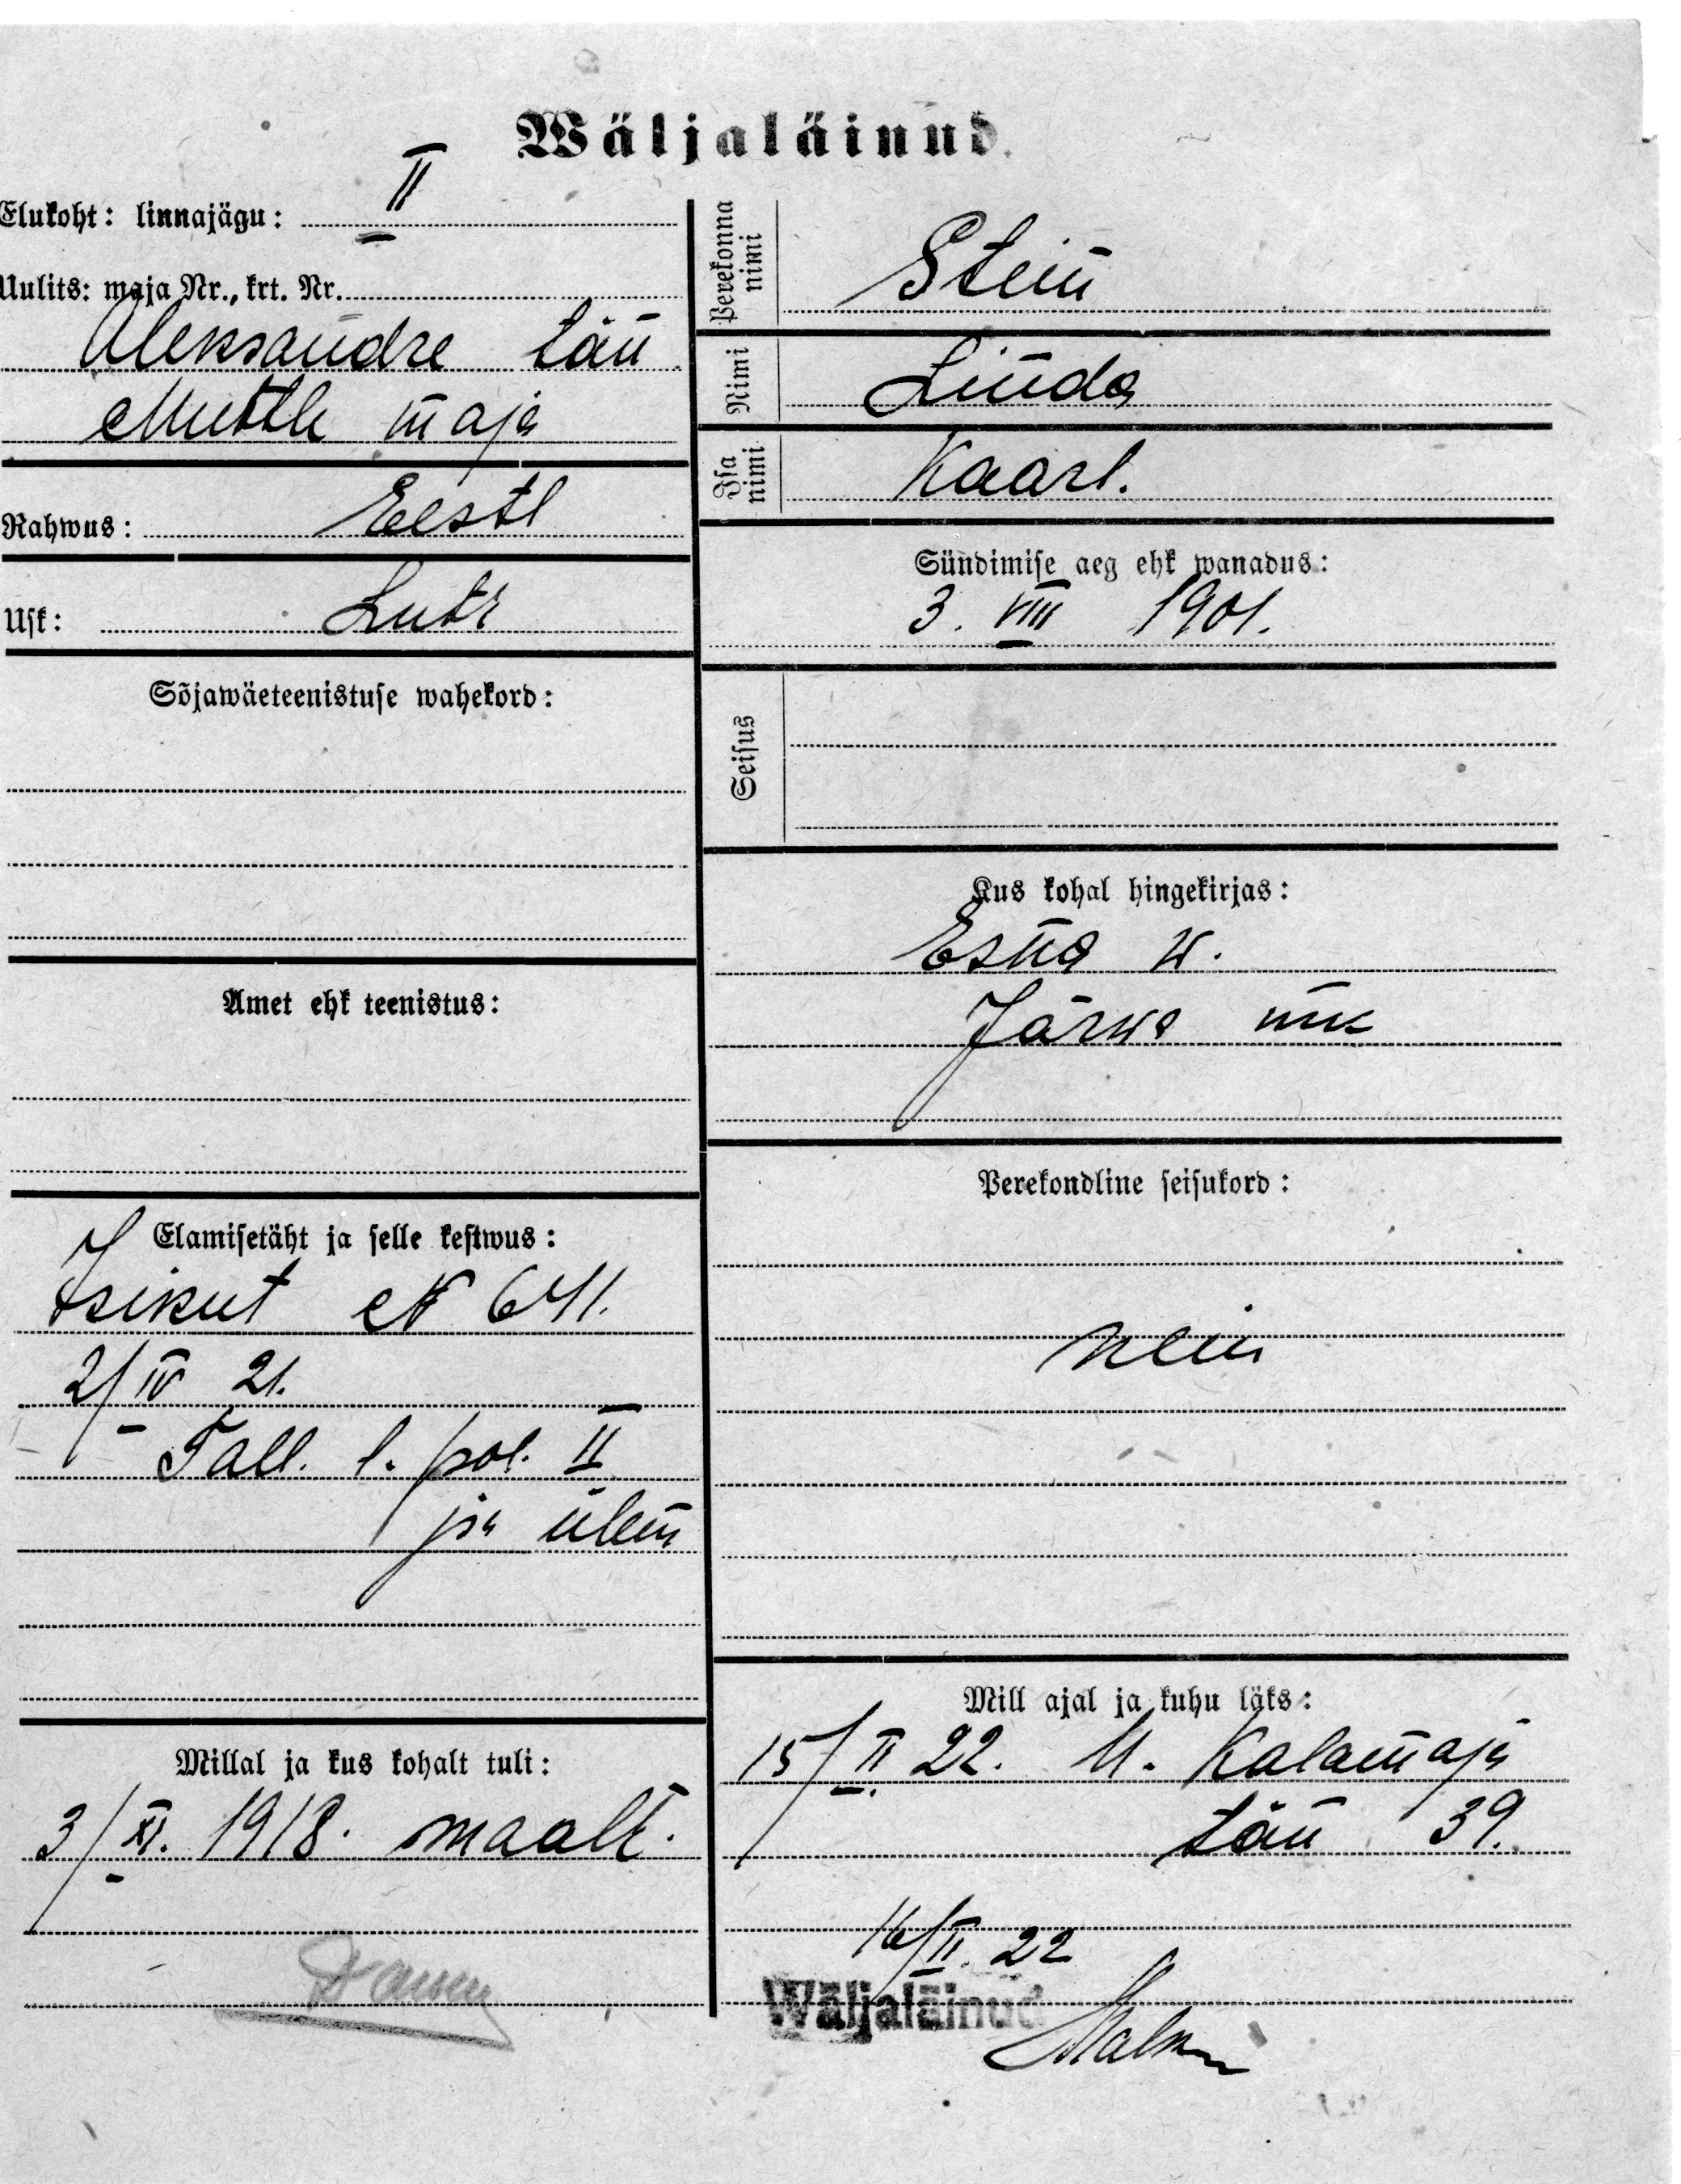 Wäljaläinud.
Elukoht: linnajägu: II
Uulits: maja Nr., krt. Nr.
Aleksandre tän.
maja
Rahwus: Eestl
Usk: Lutr
Sõjawäeteenistuse wahekord:
Amet ehk teenistus:
Elamisetäht ja selle kestwus:
Isikut № 641.
2/IV 21.
Tall. l. pol. II
jsk ülem
Millal ja kus kohalt tuli:
3/XI. 1918. maalt.
Perekonna nimi Stein
Nimi Linda
Isa nimi Kaarl.
Sündimise aeg ehk wanadus:
3. VIII 1901.
Seisus
Kus kohal hingekirjas:
Esna w.
Järwa mk
Perekondline seisukord:
nein
Mill ajal ja kuhu läks:
15/II 22. U. Kalamaja
tän 39.
16/II. 22
Wäljaläinud